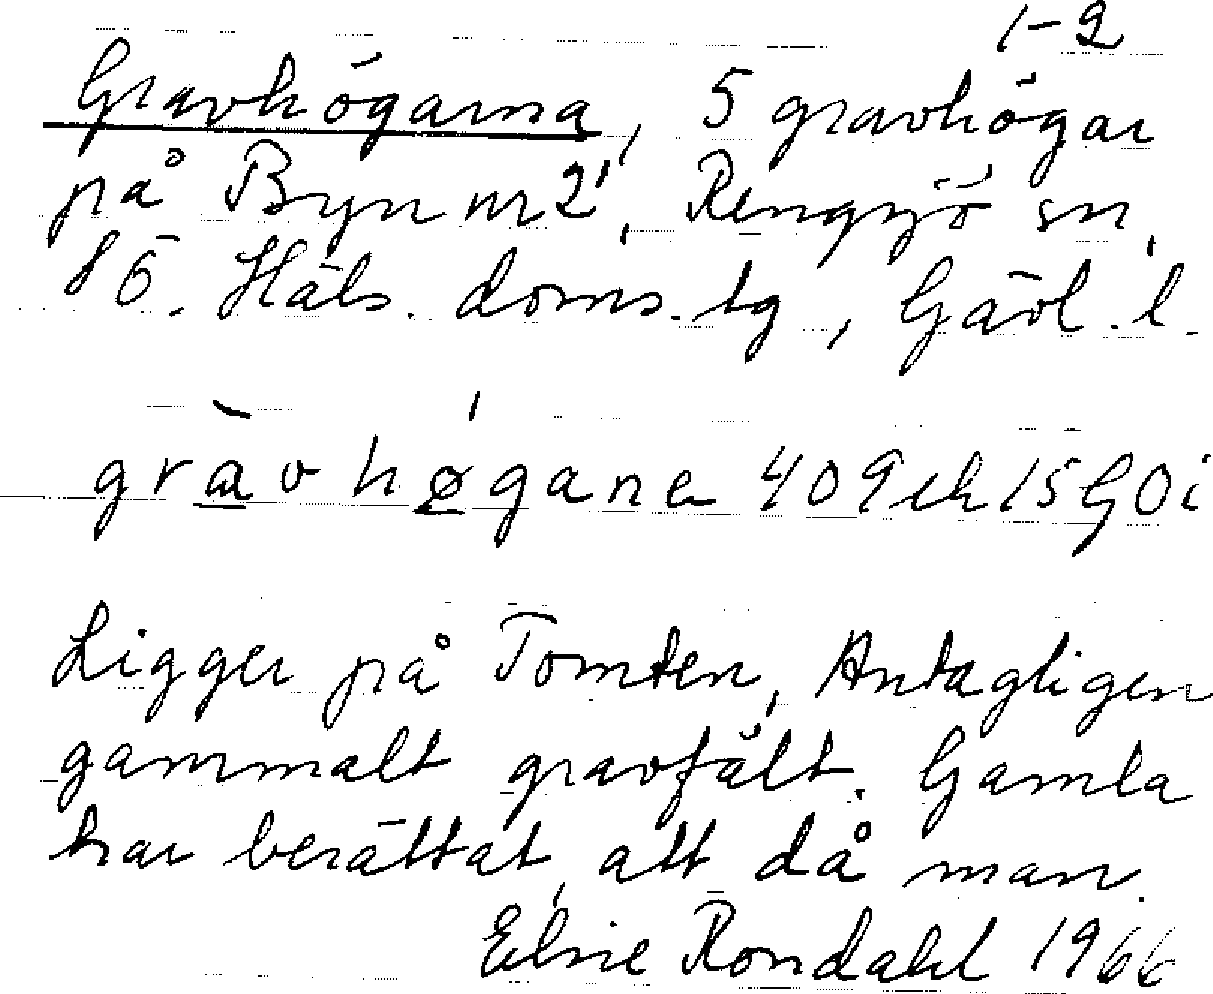 1-2
Gravhögarna, 5 gravhögar
på Byn nr 2, Rengsjö sn,
Häls. doms. tg, Gävl. l.
gràvhøgana 409
Ligger på Tomten, Antagligen
gammalt gravfält. Gamla
har berättat, att då man
Elsie Rondahl 1966